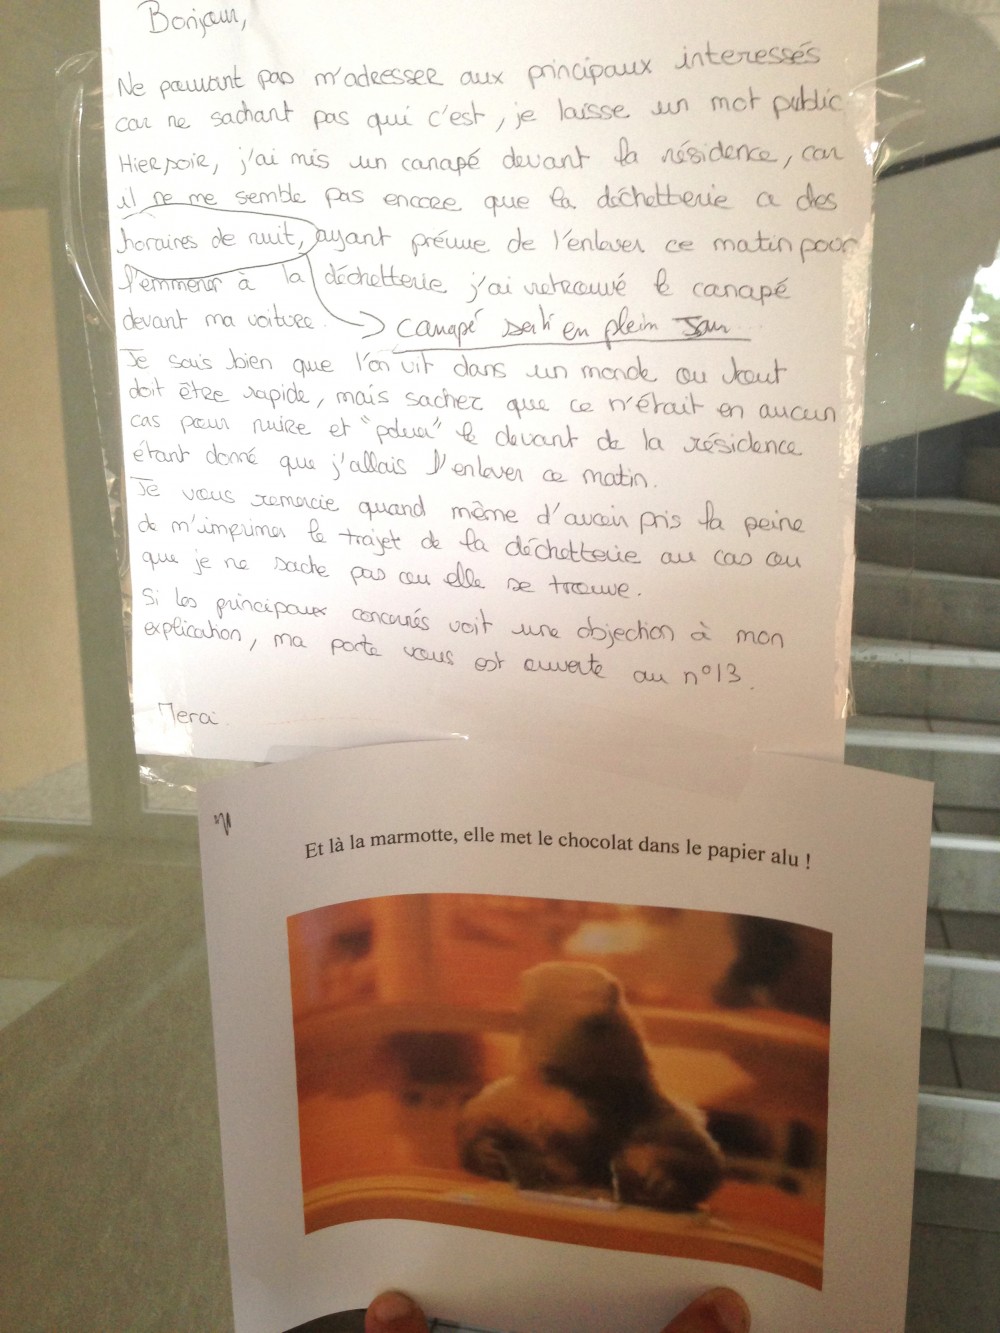 Bonjour,
Ne pouvant pas m'adresser aux principaux interessés
car ne sachant pas qui c'est, je laisse un mot public
Hier soir, j'ai mis un canapé devant la résidence, car
il ne me semble pas encore que la déchetterie a des
horaires de nuit, ayant prévue de l'enlever ce matin pour
l'emmener à la déchetterie j'ai retrouvé le canapé
devant ma voiture.
canapé sorti en plein jour
Je sais bien que l'on vit dans un monde ou tout
doit être rapide, mais sachez que ce n'était en aucun
cas pour nuire et "poluer" le devant de la résidence
étant donné que j'allais l'enlever ce matin.
Je vous remercie quand même d'avoir pris la peine
de m'imprimer le trajet de la déchetterie au cas ou
que je ne sache pas ou elle se trouve.
Si les principaux concernés voit une objection à mon
explication, ma porte vous est ouverte au n°13.
Merci
Et là la marmotte, elle met le chocolat dans le papier alu !